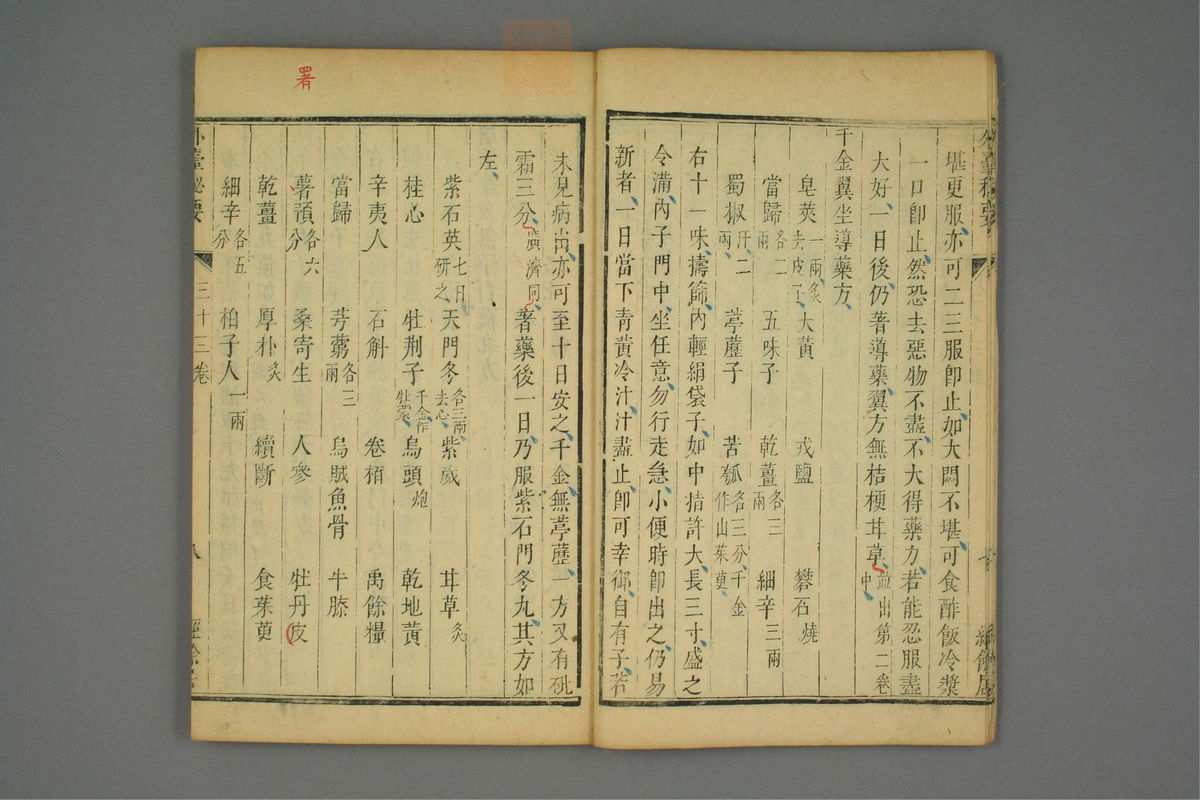 堪更服亦可二三服即止如大悶不堪可食酢飯冷漿
一口即止然恐去惡物不盡不大得藥力若能忍服盡
大好一日後仍著導藥翼方無桔梗茸草並出第二卷中
千金翼坐導藥方
皂莢一兩炙去皮子 大黃 戎鹽 礬石燒
當歸各二兩 五味子 乾薑各三兩 細辛三兩
蜀椒汗二兩 葶藶子 苦瓠各三分千金作山茱萸
右十一味擣篩內輕絹袋子如中指許大長三寸盛之
令滿內子門中坐任意勿行走急小便時即出之仍易
新者一日當下青黃冷汁汁盡止即可幸御自有子若
未見病出亦可至十日安之千金無葶藶一方又有砒
霜三分廣濟同著藥後一日乃服紫石門冬丸其方如
左
紫石英七日研之 天門冬各三兩去心 紫葳 茸草炙
桂心 牡荆子千金作牡蒙 烏頭炮 乾地黃
辛夷人 石斛 卷栢 禹餘糧
當歸 芎藭各三兩 烏賊魚骨 牛膝
薯蕷各六分 桑寄生 人參 牡丹皮
乾薑 厚朴炙 續斷 食茱萸
細辛各五分 柏子人一兩
外臺秘要 三十三卷 八 經餘居
署